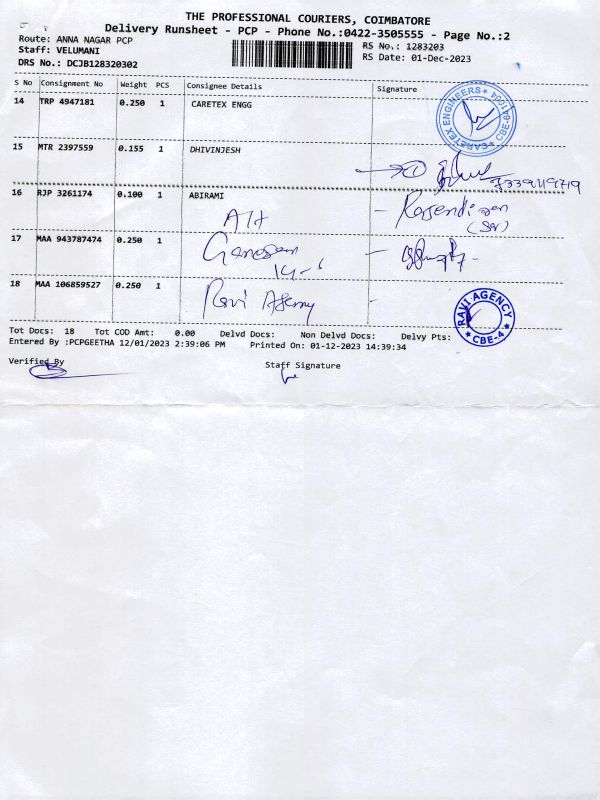 THE PROFESSIONAL COURIERS, COIMBATORE
Delivery Runsheet - PCP - Phone No.:0422-3505555 - Page No.:2
Route: ANNA NAGAR PCP
RS No.: 1283203
Staff: VELUMANI
RS Date: 01-Dec-2023
DRS No.: DCJB128320302
S No Consignment No Weight PCS Consignee Details Signature
14 TRP 4947181 0.250 1 CARETEX ENGG
CARETEX ENGINEERS CBE-641004
15 MTR 2397559 0.155 1 DHIVINJESH
16 RJP 3261174 0.100 1 ABIRAMI
17 MAA 943787474 0.250 1 Ganesan
18 MAA 106859527 0.250 1 Ravi Agency
RAVI AGENCY CBE-4
Tot Docs: 18 Tot COD Amt: 0.00 Delvd Docs: Non Delvd Docs: Delvy Pts:
Entered By :PCPGEETHA 12/01/2023 2:39:06 PM Printed On: 01-12-2023 14:39:34
Verified By Staff Signature